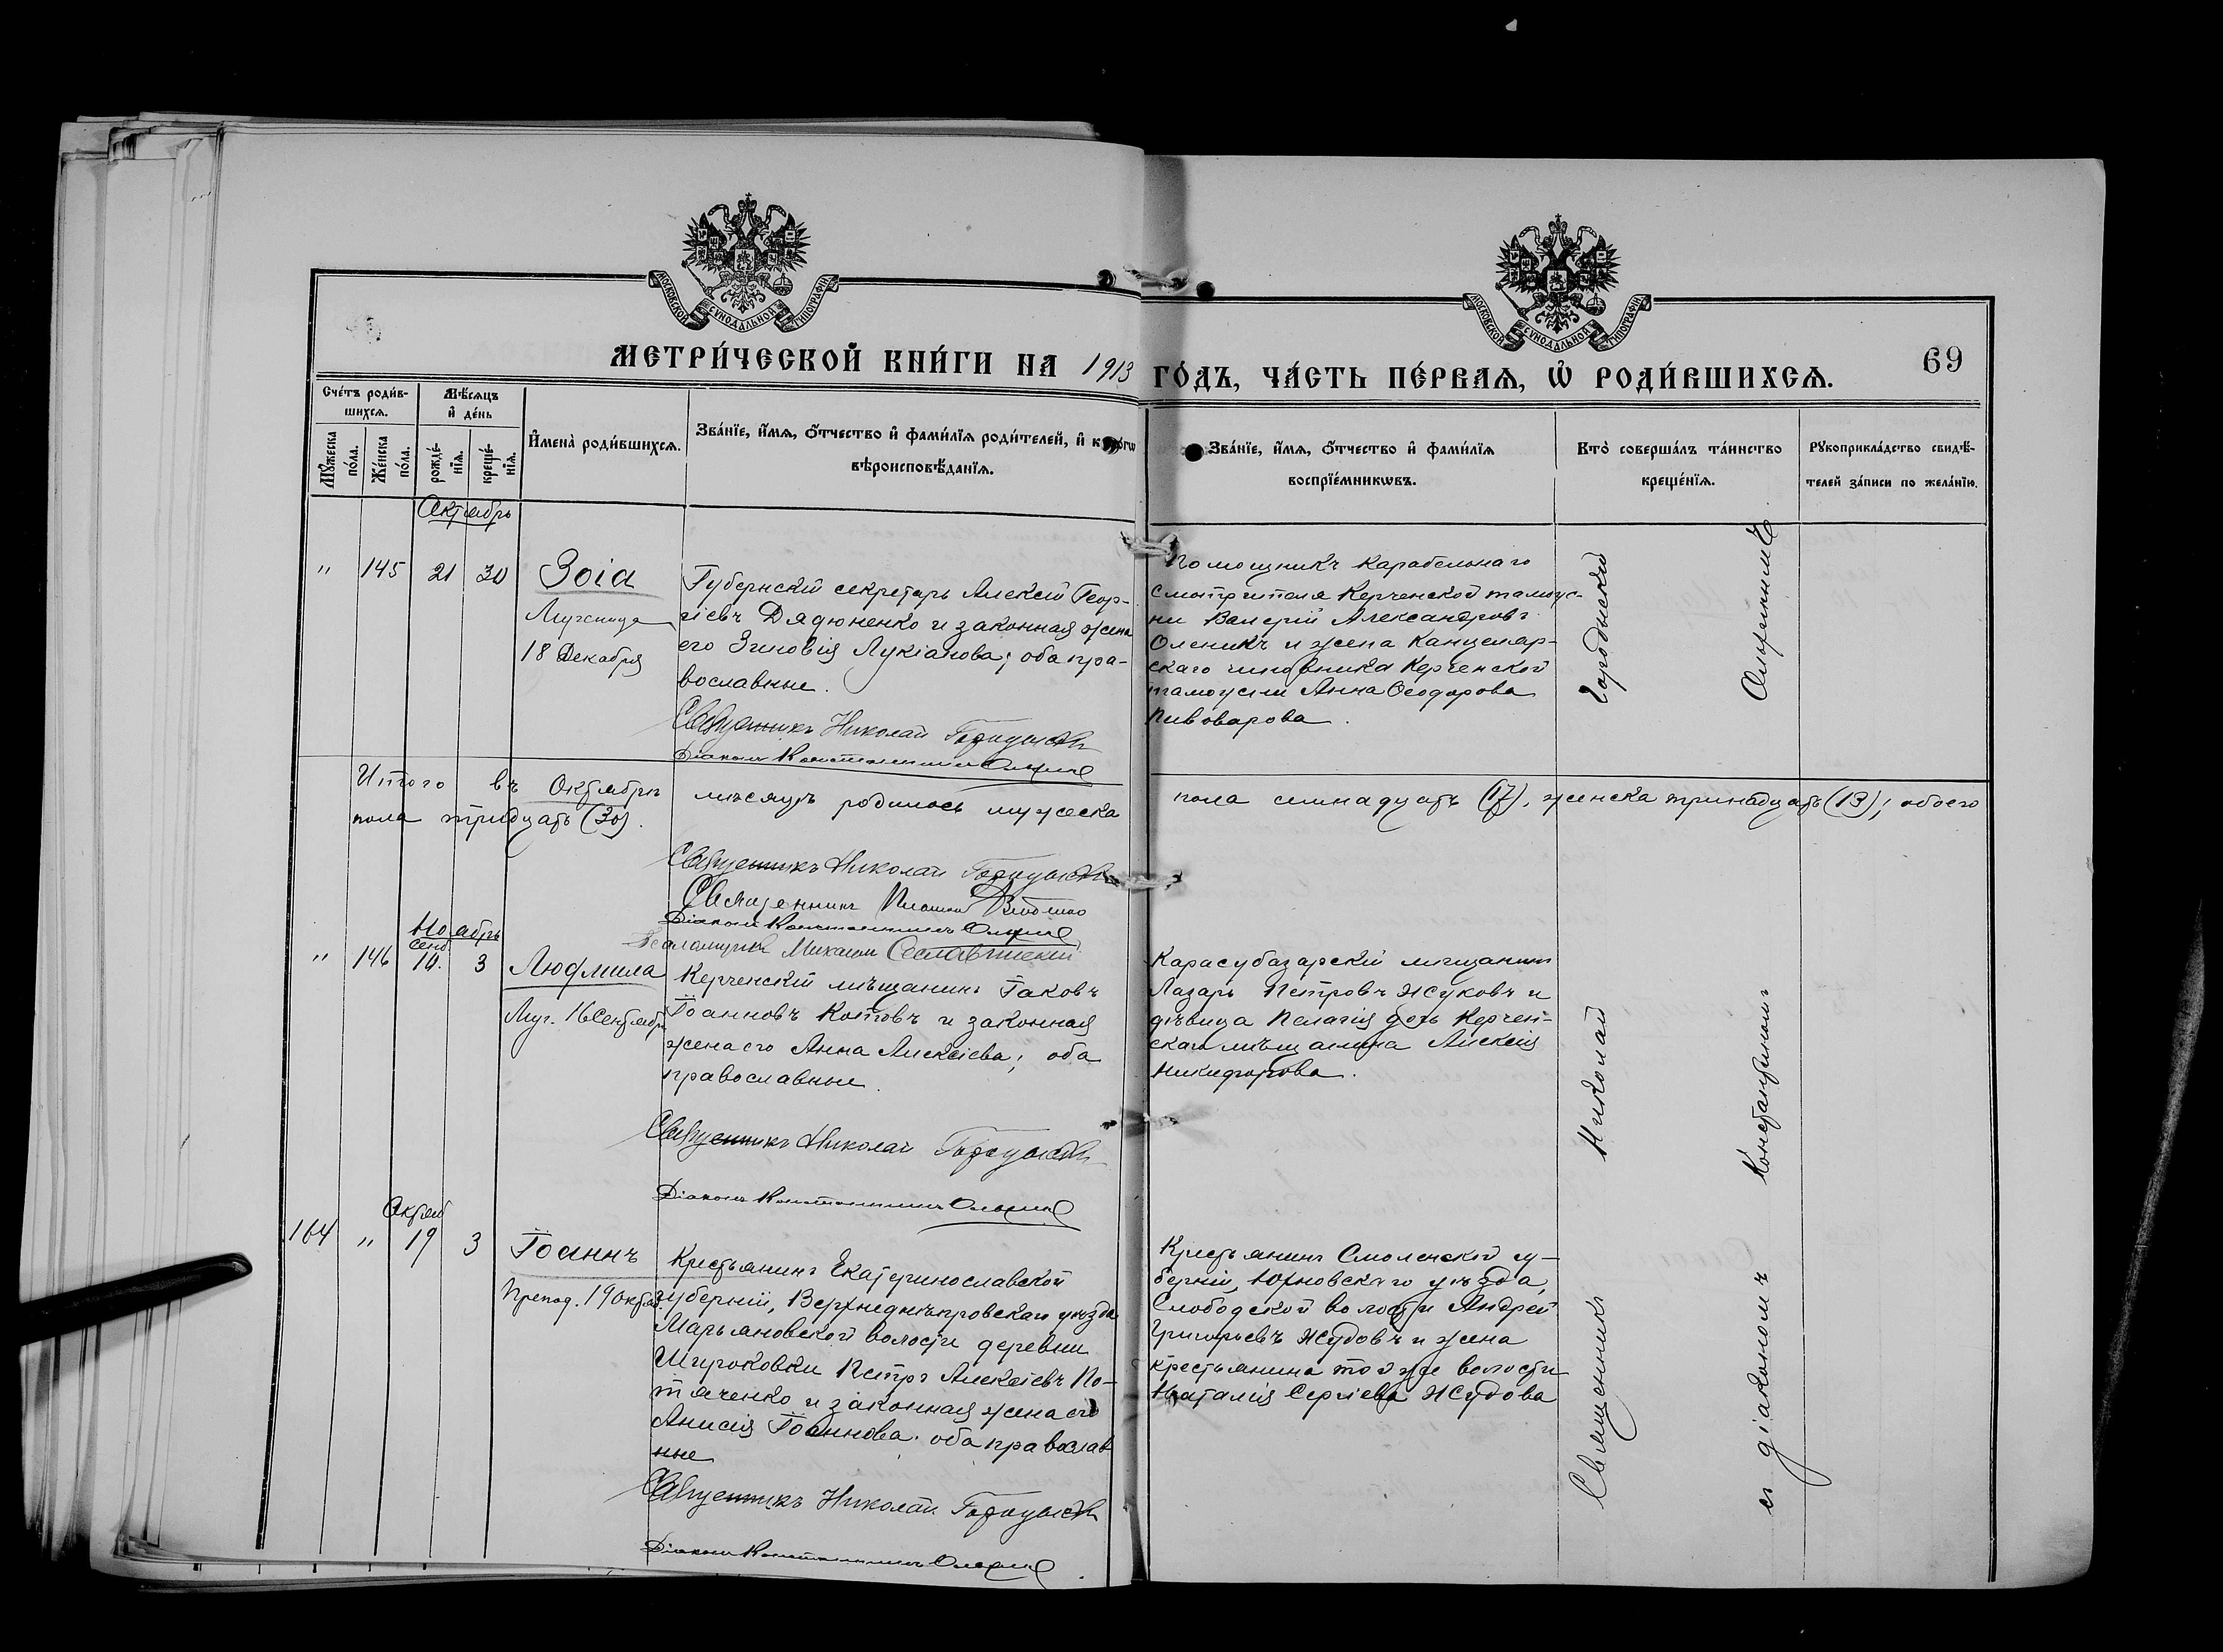 МОСКОВСКОЙ СѴНОДАЛЬНОЙ ТИПОГРАФІИ
МОСКОВСКОЙ СѴНОДАЛЬНОЙ ТИПОГРАФІИ
МЕТРИ́ЧЕСКОЙ КНИ́ГИ НА 1913 ГО́ДЪ, ЧА́СТЬ ПЕ́РВАЯ, Ѡ РОДИ́ВШИХСЯ.
69
Сче́тъ роди́в-
шихся.
Мѣ́сяцъ
и де́нь
Му́жеска
по́ла.
Же́нска
по́ла.
рожде́-
нія.
креще́-
нія.
Имена̀ роди́вшихся.
Зва́нїе, и́мя, о́тчество и фами́лїя роди́телей, и
вѣроисповѣ́данїя.
Зва́нїе, и́мя, о́тчество и фами́лїя
воспрїе́мникѡвъ.
Кто̀ соверша́лъ та́инство
креще́нїя.
Рукоприкла́дство свидѣ́-
телей за́писи по жела́нїю.
Октябрь
" 145 21 30 Зоіа
Мученица
18 Декабря
Губернскій секретарь Алексѣй Геор-
гіевъ Дядюненко и законная жена
его Зиновія Лукіанова; оба пра-
вославные.
Священникъ Николай Городынскій
Діаконъ Константинъ
Помощникъ Карабельнаго
Смотрителя Керченской тамож-
ни Валерій Александровъ
Оленикъ и жена Канцеляр-
скаго чиновника Керченской
таможни Анна Ѳеодорова
Пивоварова.
Итого въ Октябрѣ мѣсяцѣ родилось мужеска пола семнадцать (17), женска тринадцать (13); обоего
пола тридцать (30).
Священникъ Николай Городынскій
Священникъ
Діаконъ Константинъ
Псаломщикъ Михаилъ
Ноябрь
Сент.
" 146 3 Людмила
Муч. 16 Сентября
Керченскій мѣщанинъ Іаковъ
Іоанновъ Котовъ и законная
жена его Анна Алексіева; оба
православные.
Священникъ Николай Городынскій
Діаконъ Константинъ
Карасубазарскій мѣщанинъ
Лазарь Петровъ Жуковъ и
дѣвица Пелагія дочь Керчен-
скаго мѣщанина Алексія
Никифорова.
Октяб
164 " 19 3 Іоаннъ
Препод. 19 Октяб.
Крестьянинъ Екатеринославской
губерніи, Верхнеднѣпровскаго уѣзда
Марьяновской волости деревни
Широковки Петръ Алексіевъ По-
тяченко и законная жена его
Анисія Іоаннова. оба православ
ные
Священникъ Николай Городынскій
Діаконъ Константинъ
Крестьянинъ Смоленской гу-
берніи, Юхновскаго уѣзда,
Слободской волости Андрей
Григорьевъ Жудовъ и жена
крестьянина той же волости
Наталія Сергіева Жудова
Священникъ Николай Городынскій
съ діакономъ Константиномъ